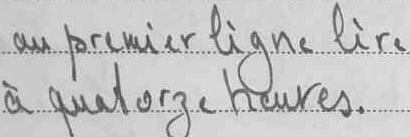 au premier ligne lire
à quatorze heures.